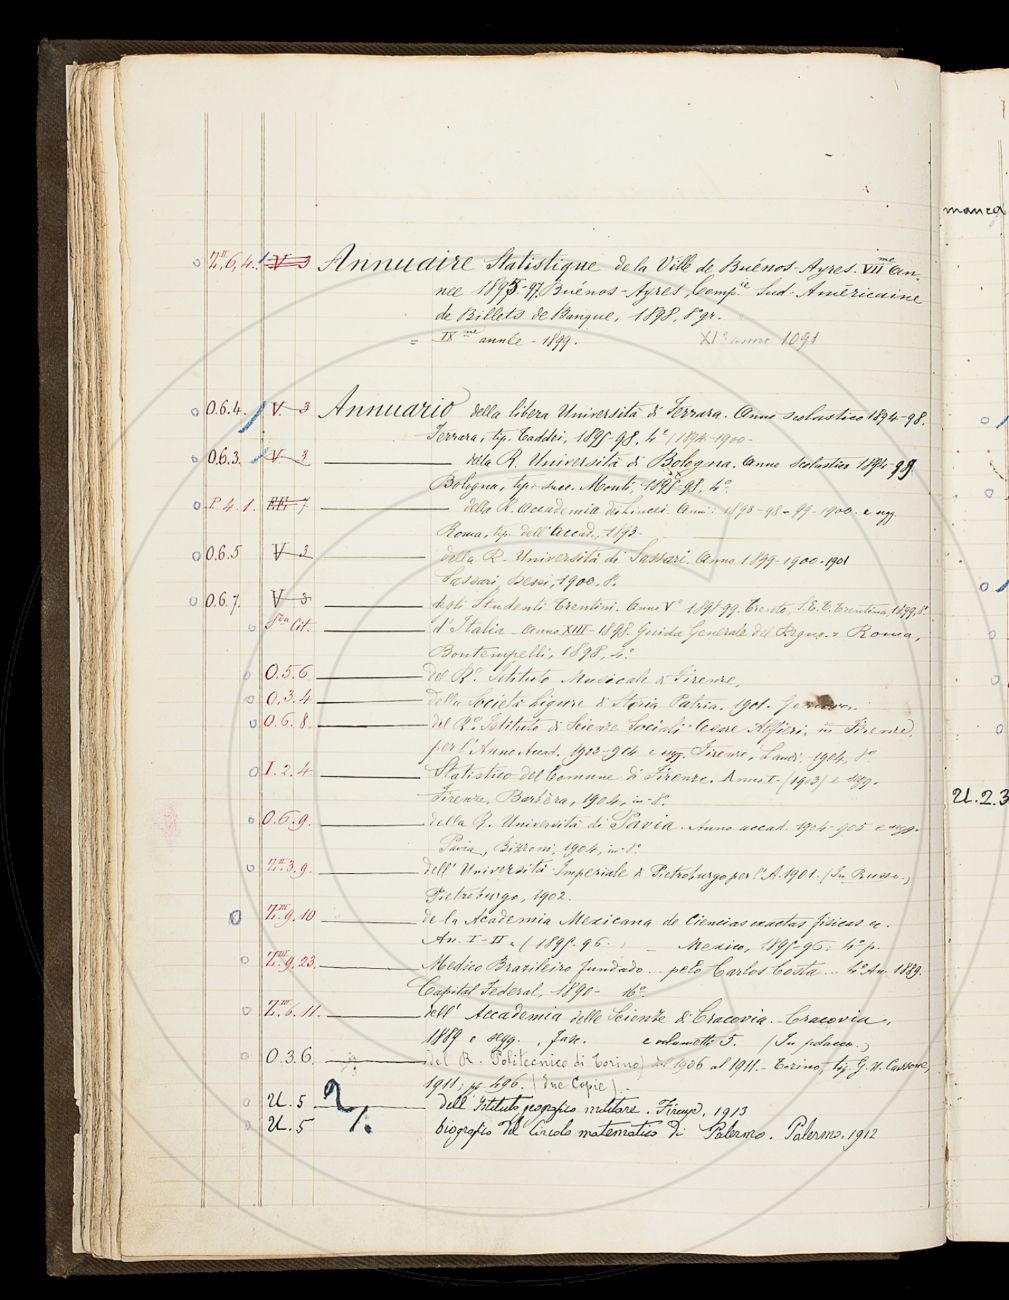 Z.II 6,4. V 3 Annuaire Statistique de la Ville de Buénos-Ayres. VIIme An-
née 1895-97. Buénos-Ayres, Comp.ie Sud-Américaine
de Billets de Banque, 1898, 8° gr.
= IXme année - 1899. XI° anno 1091
O.6.4. V 3 Annuario della libera Università di Ferrara. Anno scolastico 1894-98.
Ferrara, tip. Taddei, 1895-98, 4° (1894-1900-
O.6.3. V 3 della R. Università di Bologna. Anno scolastico 1894-99.
Bologna, tip. succ. Monti, 1895-98, 4°.
P.4.1. EE 7 della R. Accademia dei Lincei. Anni 1893-98-99-1900- e segg.
Roma, tip. dell'Accad., 1893.
O.6.5 V 3 della R. Università di Sassari. Anno 1899-1900-1901
Sassari, Dessì, 1900. 8°.
O.6.7. V 3 degli Studenti Trentini. Anno V° 1898-99. Trento, S.E.T. Trentina, 1899, 8°.
Cit. d'Italia - Anno XIII - 1898. Guida Generale del Regno. Roma,
Bontempelli, 1898, 4°.
O.5.6. del R° Istituto Musicale di Firenze.
O.3.4 della Società Ligure di Storia Patria. 1901.
O.6.8. del R° Istituto di Scienze Sociali Cesare Alfieri, in Firenze,
per l'Anno Accad. 1903-904 e segg. Firenze, Landi, 1904, 8°
I.2.4. Statistico del Comune di Firenze. Anno I- (1903) e segg.
Firenze, Barbèra, 1904, in-8°.
O.6.9. della R. Università di Pavia. Anno accad. 1904-905 e segg.
Pavia, Bizzoni, 1904, in-8°.
Z.II 3,9. dell'Università Imperiale di Pietroburgo per l'A. 1901. (In Russo.)
Pietroburgo, 1902.
Z.III 9.10 de la Academia Mexicana de Ciencias exactas fisicas &c.
An. I-II. (1895-96. — Mexico, 1895-96. 4° p.
Z.III 9.23. Medico Brazileiro fundado... pelo Carlos Costa... 4° An. 1889.
Capital Federal, 1890- 16°.
Z.III 6.11. dell'Accademia delle Scienze di Cracovia. - Cracovia,
1889 e segg., fasc. e volumetti 5. (In polacco.)
O.3.6. del R. Politecnico di Torino, dal 1906 al 1911. - Torino, tip. G. U. Cassone,
1911, p. 496. (Due Copie).
U.5 dell'Istituto geografico militare. Firenze, 1913
U.5 biografico del Circolo matematico di Palermo. Palermo, 1912
2/.
manca
U.2.3